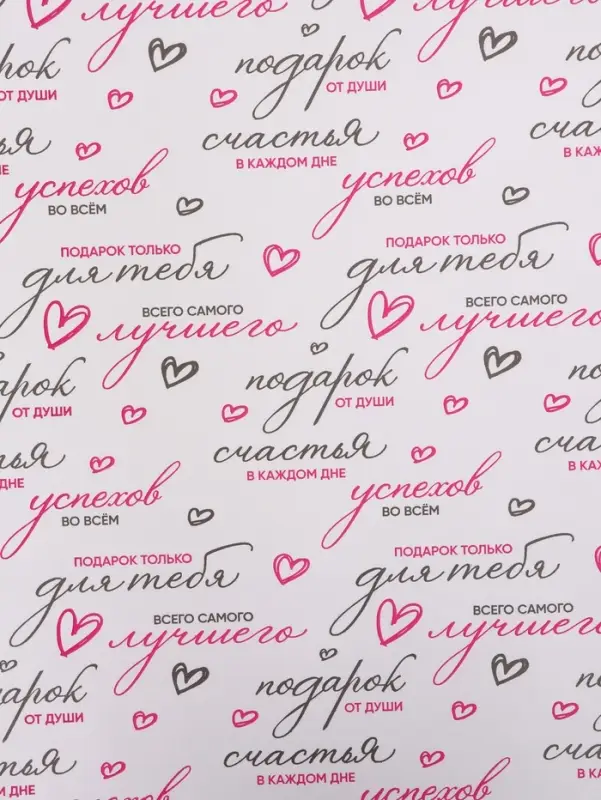 лучшего
лучшего
подарок
подарок
ОТ ДУШИ
ОТ ДУШИ
счастья
В КАЖДОМ ДНЕ
успехов
ВО ВСЁМ
успехов
ВО ВСЁМ
ПОДАРОК ТОЛЬКО
для тебя
ПОДАРОК ТОЛЬКО
для тебя
ВСЕГО САМОГО
лучшего
ВСЕГО САМОГО
лучшего
подарок
ОТ ДУШИ
подарок
ОТ ДУШИ
счастья
В КАЖДОМ ДНЕ
успехов
ВО ВСЁМ
успехов
ВО ВСЁМ
ПОДАРОК ТОЛЬКО
для тебя
ПОДАРОК ТОЛЬКО
для тебя
ВСЕГО САМОГО
лучшего
ВСЕГО САМОГО
лучшего
подарок
ОТ ДУШИ
подарок
ОТ ДУШИ
счастья
В КАЖДОМ ДНЕ
успехов
успехов